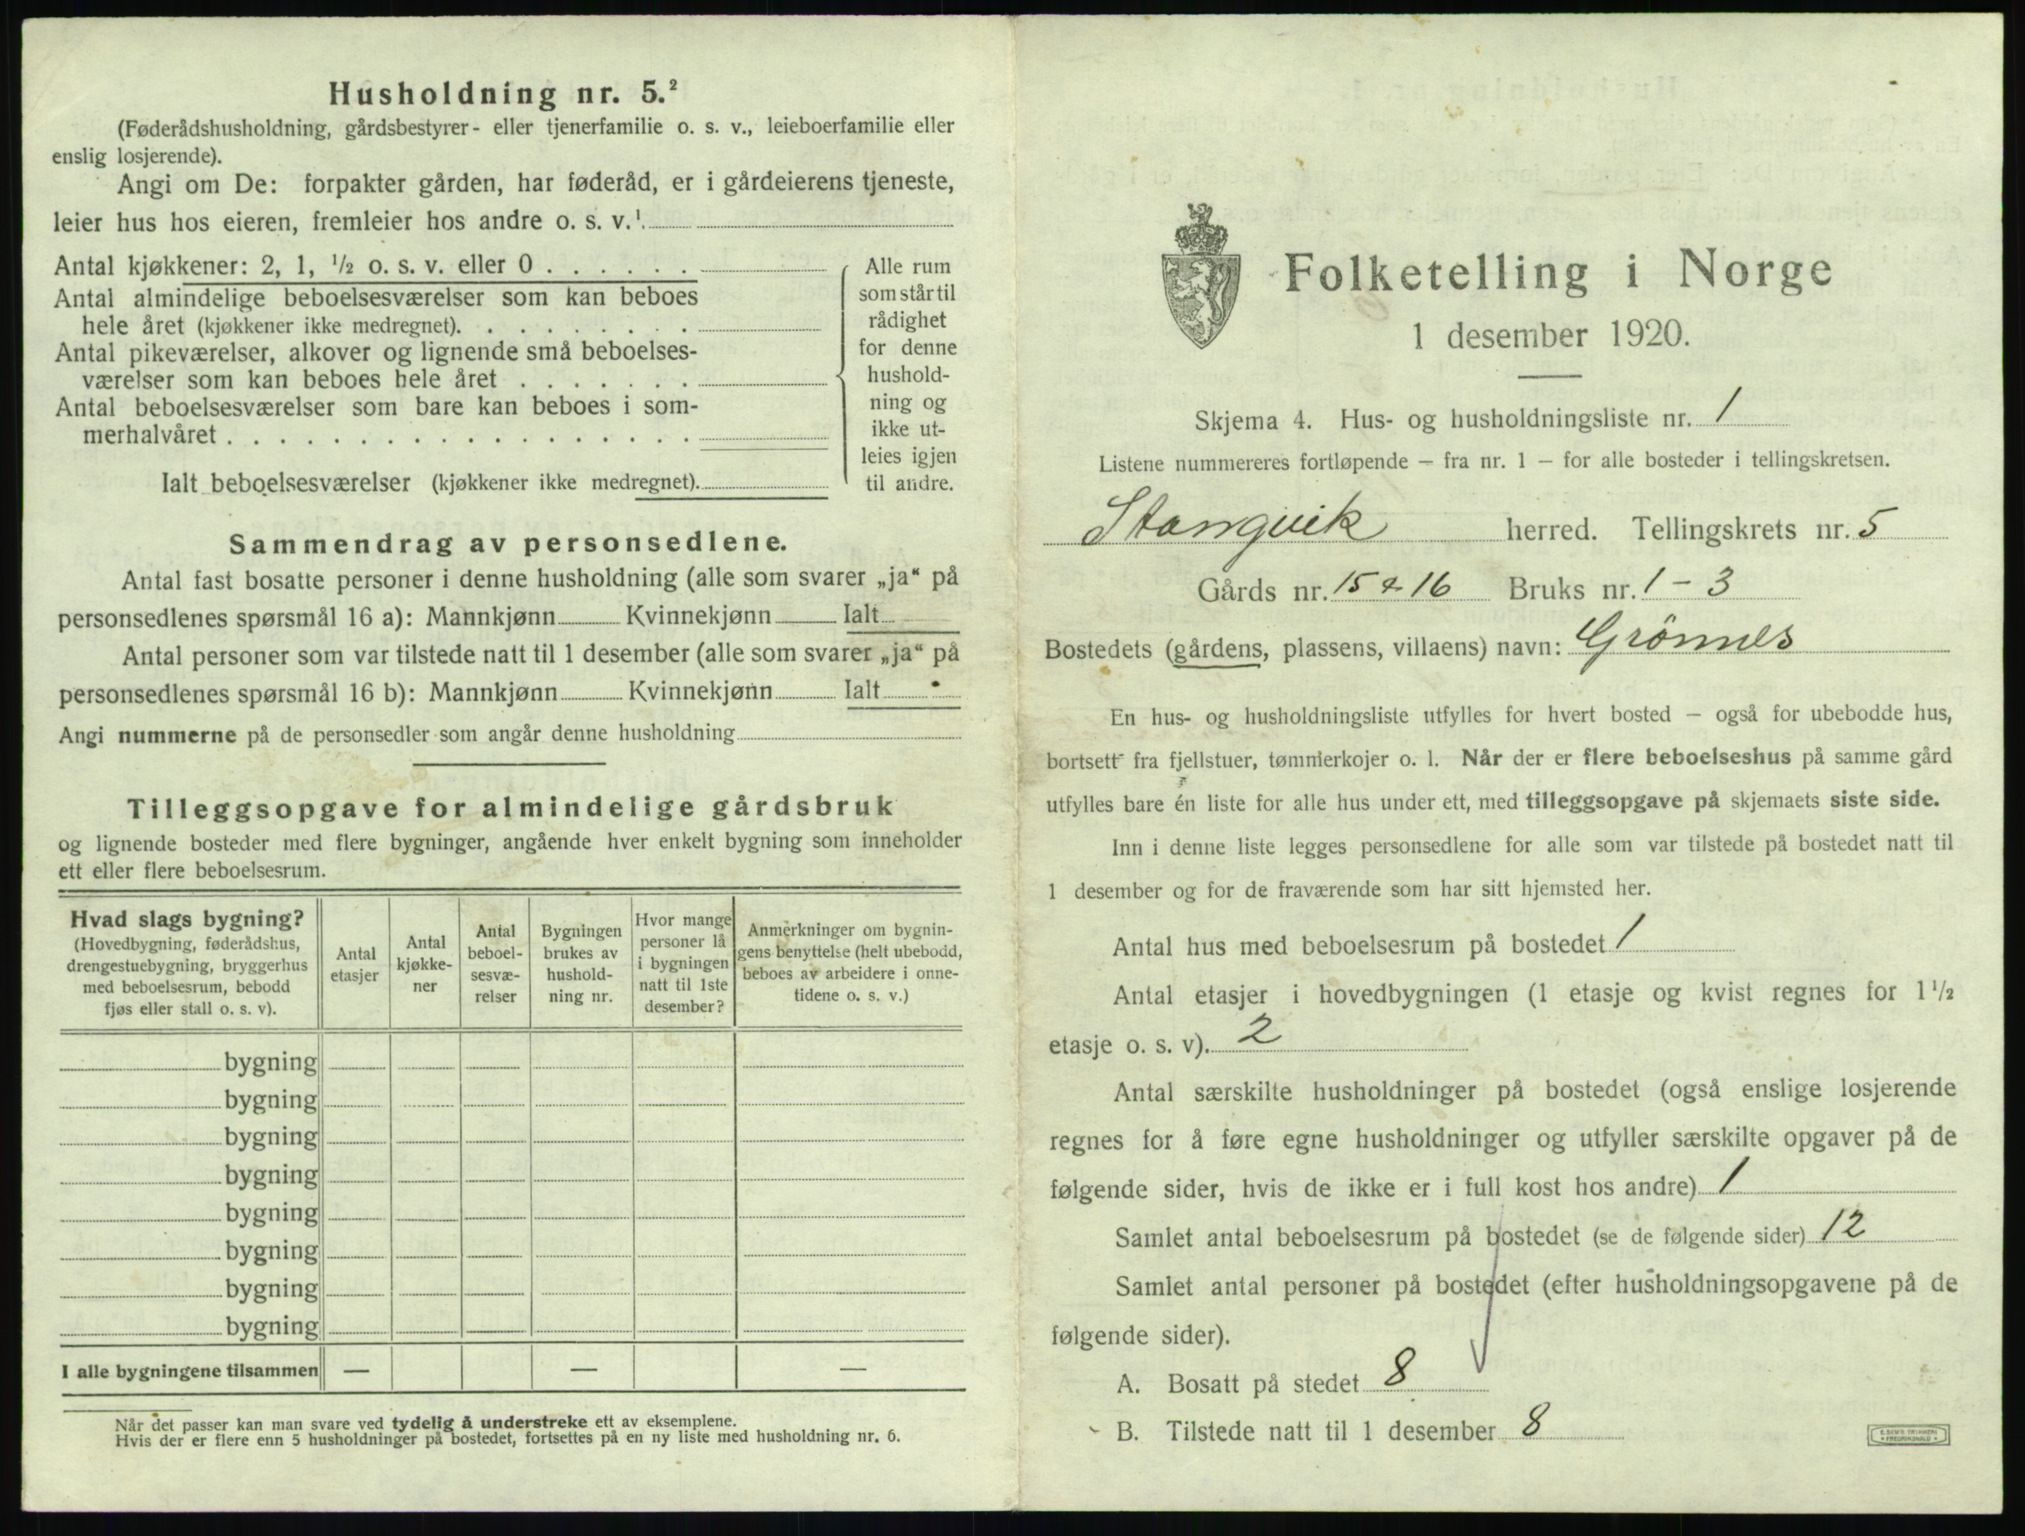 Husholdning nr. 5.²
(Føderådshusholdning, gårdsbestyrer- eller tjenerfamilie o. s. v., leieboerfamilie eller
enslig losjerende).
Angi om De: forpakter gården, har føderåd, er i gårdeierens tjeneste,
leier hus hos eieren, fremleier hos andre o. s. v.¹
Antal kjøkkener: 2, 1, ½ o. s. v. eller 0 . . . . . .
Antal almindelige beboelsesværelser som kan beboes
hele året (kjøkkener ikke medregnet). . . . . . . . .
Antal pikeværelser, alkover og lignende små beboelses-
værelser som kan beboes hele året . . . . . . .
Antal beboelsesværelser som bare kan beboes i som-
merhalvåret . . . . . . . . . . . . . . . . . .
Ialt beboelsesværelser (kjøkkener ikke medregnet).
Alle rum
som står til
rådighet
for denne
hushold-
ning og
ikke ut-
leies igjen
til andre.
Sammendrag av personsedlene.
Antal fast bosatte personer i denne husholdning (alle som svarer „ja“ på
personsedlenes spørsmål 16 a): Mannkjønn Kvinnekjønn Ialt
Antal personer som var tilstede natt til 1 desember (alle som svarer „ja“ på
personsedlenes spørsmål 16 b): Mannkjønn Kvinnekjønn Ialt
Angi nummerne på de personsedler som angår denne husholdning
Tilleggsopgave for almindelige gårdsbruk
og lignende bosteder med flere bygninger, angående hver enkelt bygning som inneholder
ett eller flere beboelsesrum.
Hvad slags bygning?
(Hovedbygning, føderådshus,
drengestuebygning, bryggerhus
med beboelsesrum, bebodd
fjøs eller stall o. s. v).
Antal
etasjer
Antal
kjøkke-
ner
Antal
beboel-
sesvæ-
relser
Bygningen
brukes av
hushold-
ning nr.
Hvor mange
personer lå
i bygningen
natt til 1ste
desember?
Anmerkninger om bygnin-
gens benyttelse (helt ubebodd,
beboes av arbeidere i onne-
tidene o. s. v.)
bygning
bygning
bygning
bygning
bygning
bygning
bygning
bygning
I alle bygningene tilsammen — — —
Når det passer kan man svare ved tydelig å understreke ett av eksemplene.
Hvis der er flere enn 5 husholdninger på bostedet, fortsettes på en ny liste med husholdning nr. 6.
Folketelling i Norge
1 desember 1920.
Skjema 4. Hus- og husholdningsliste nr. 1
Listene nummereres fortløpende — fra nr. 1 — for alle bosteder i tellingskretsen.
Stangvik herred. Tellingskrets nr. 5
Gårds nr. 15 & 16 Bruks nr. 1 - 3
Bostedets (gårdens, plassens, villaens) navn: Grönnes
En hus- og husholdningsliste utfylles for hvert bosted — også for ubebodde hus,
bortsett fra fjellstuer, tømmerkojer o. l. Når der er flere beboelseshus på samme gård
utfylles bare én liste for alle hus under ett, med tilleggsopgave på skjemaets siste side.
Inn i denne liste legges personsedlene for alle som var tilstede på bostedet natt til
1 desember og for de fraværende som har sitt hjemsted her.
Antal hus med beboelsesrum på bostedet 1
Antal etasjer i hovedbygningen (1 etasje og kvist regnes for 1½
etasje o. s. v). 2
Antal særskilte husholdninger på bostedet (også enslige losjerende
regnes for å føre egne husholdninger og utfyller særskilte opgaver på de
følgende sider, hvis de ikke er i full kost hos andre) 1
Samlet antal beboelsesrum på bostedet (se de følgende sider) 12
Samlet antal personer på bostedet (efter husholdningsopgavene på de
følgende sider).
A. Bosatt på stedet 8
B. Tilstede natt til 1 desember 8